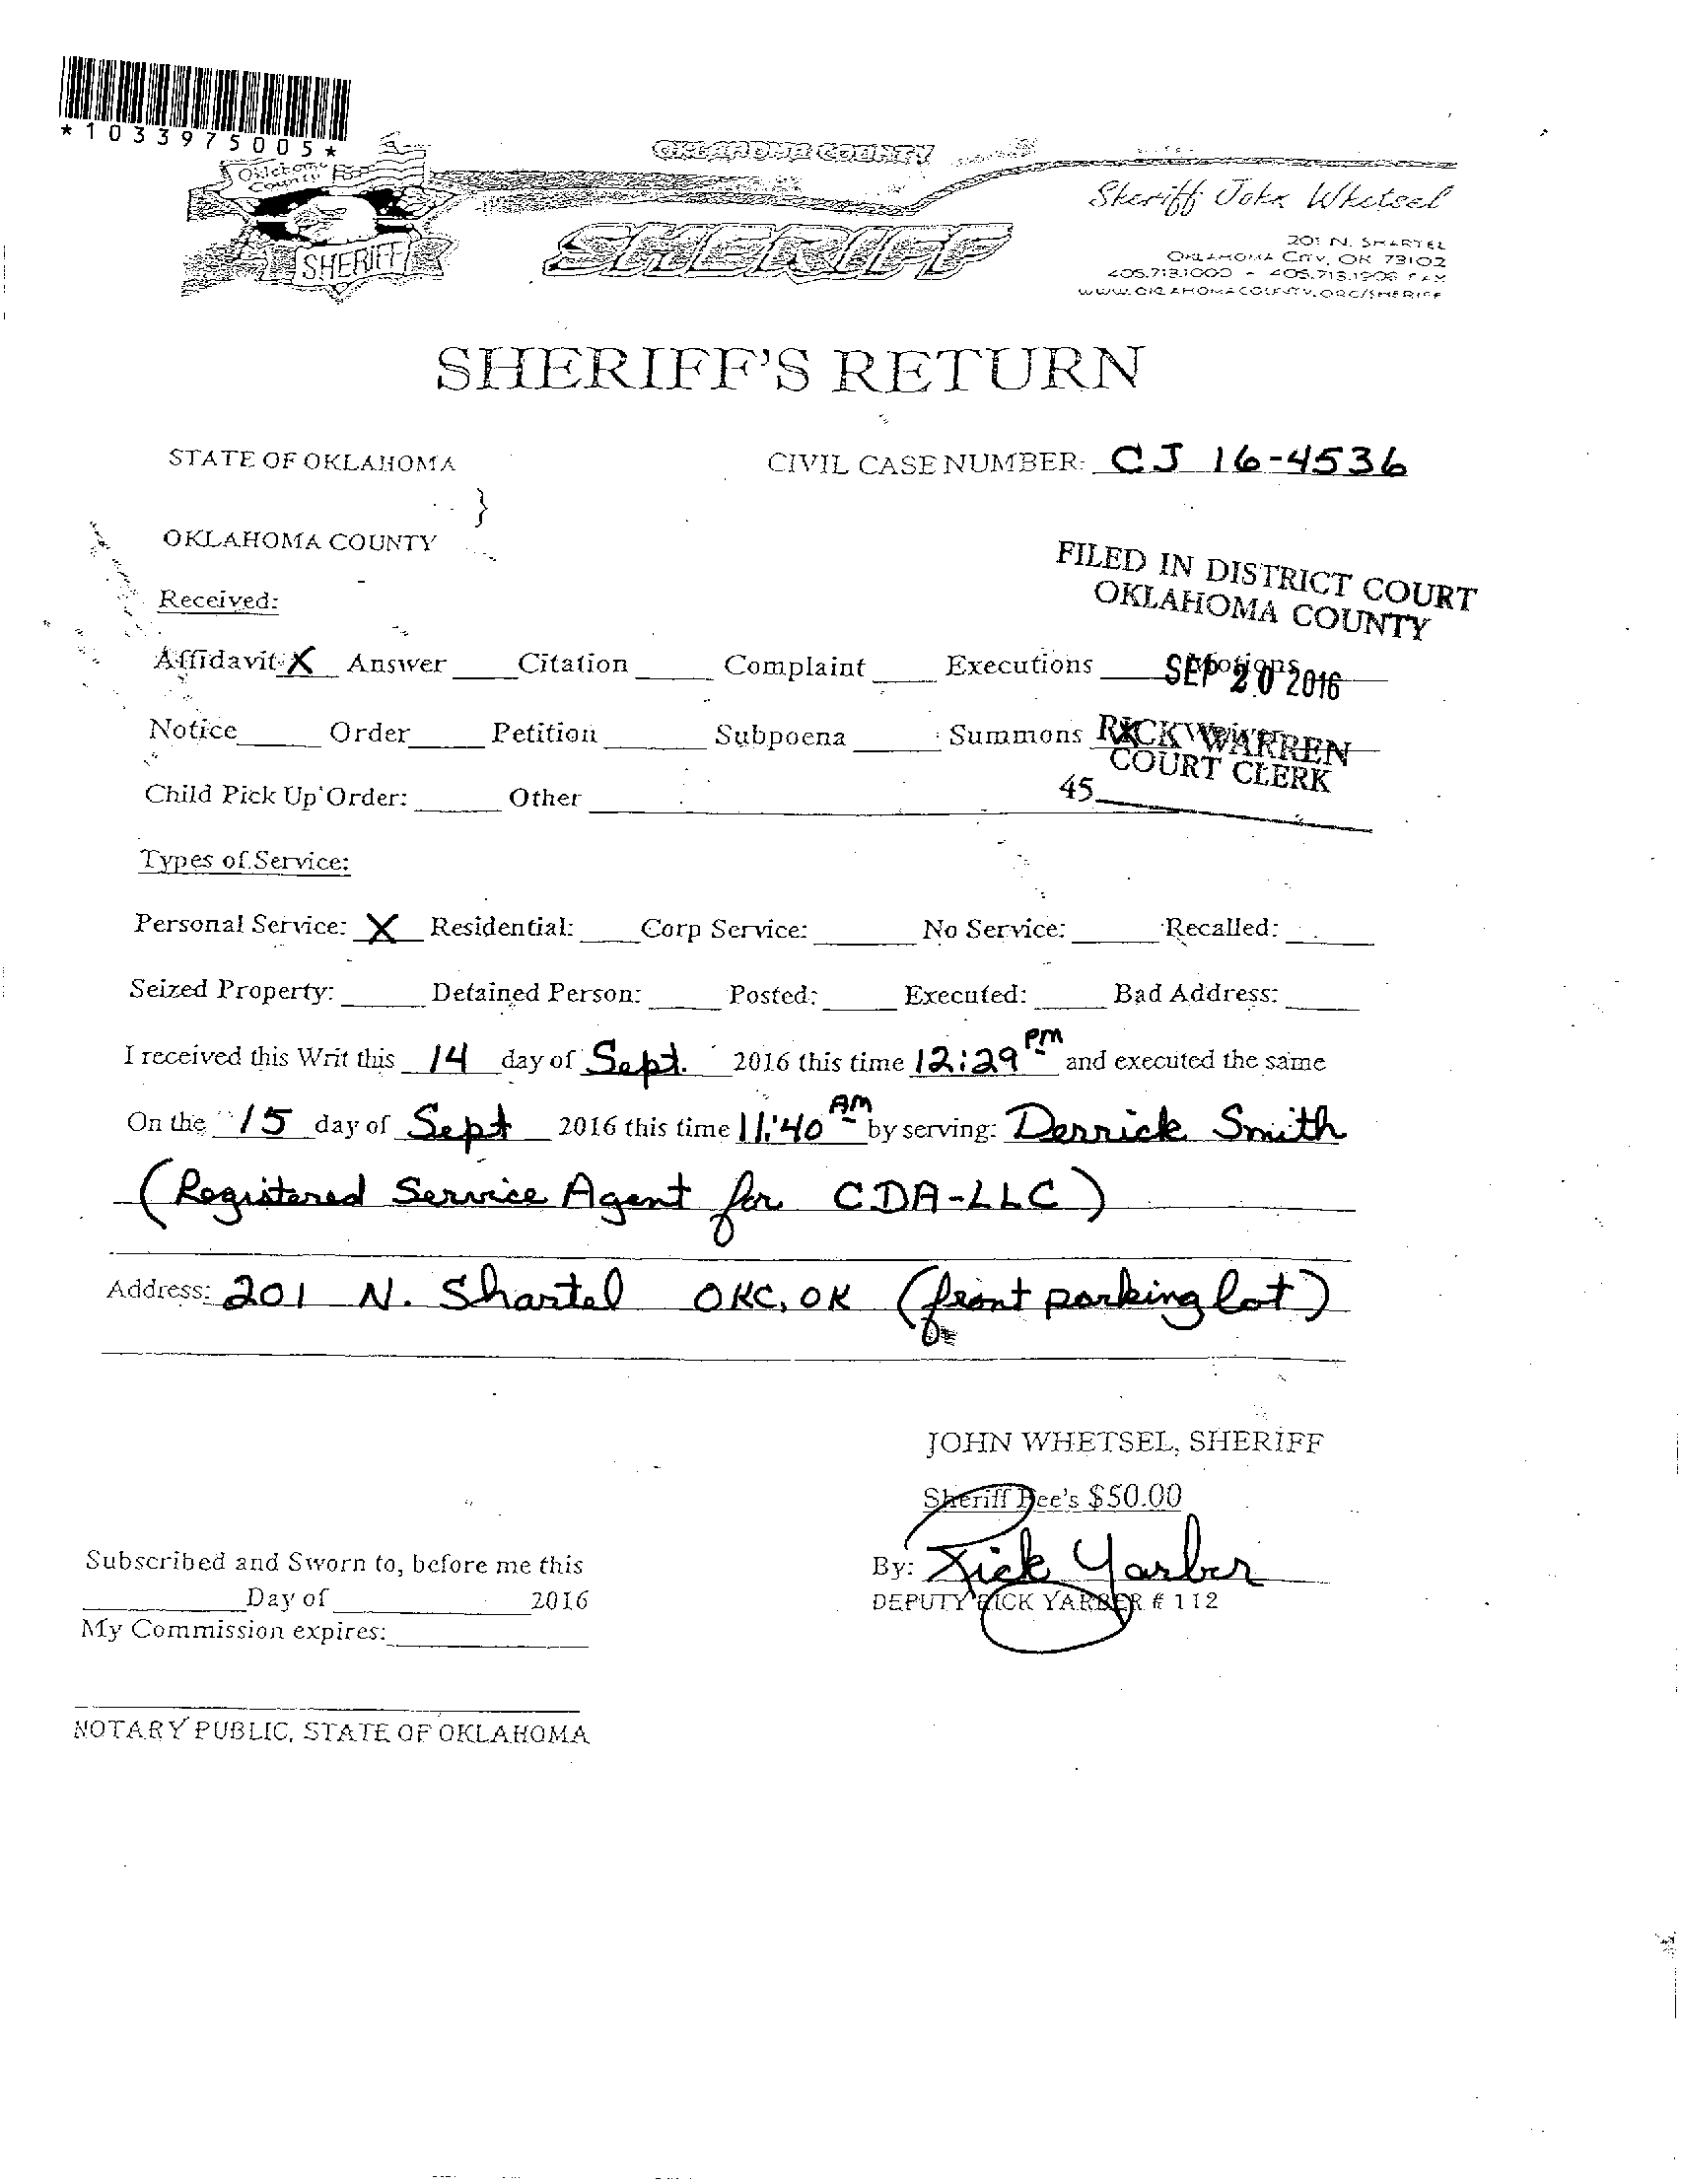 *1033975005*
Oklahoma County
SHERIFF
OKLAHOMA COUNTY
SHERIFF
Sheriff John Whetsel
201 N. SHARTEL
OKLAHOMA CITY, OK 73102
405.713.1000 - 405.713.1908 FAX
WWW.OKLAHOMACOUNTY.ORG/SHERIFF
SHERIFF'S RETURN
STATE OF OKLAHOMA CIVIL CASE NUMBER: CJ 16-4536
}
OKLAHOMA COUNTY
FILED IN DISTRICT COURT
OKLAHOMA COUNTY
Received:
Affidavit X Answer ____ Citation ____ Complaint ____ Executions ____ Motions ____
SEP 20 2016
Notice ____ Order ____ Petition ____ Subpoena ____ Summons X Writ ____
RICK WARREN
COURT CLERK
45
Child Pick Up Order: ____ Other ____
Types of Service:
Personal Service: X Residential: ____ Corp Service: ____ No Service: ____ Recalled: ____
Seized Property: ____ Detained Person: ____ Posted: ____ Executed: ____ Bad Address: ____
I received this Writ this 14 day of Sept. 2016 this time 12:29 PM and executed the same
On the 15 day of Sept 2016 this time 11:40 AM by serving: Derrick Smith
(Registered Service Agent for CDA-LLC)
Address: 201 N. Shartel OKC, OK (front parking lot)
JOHN WHETSEL, SHERIFF
Sheriff Fee's $50.00
Subscribed and Sworn to, before me this
By: Rick Yarber
____ Day of ____ 2016
DEPUTY RICK YARBER # 112
My Commission expires: ____
NOTARY PUBLIC, STATE OF OKLAHOMA